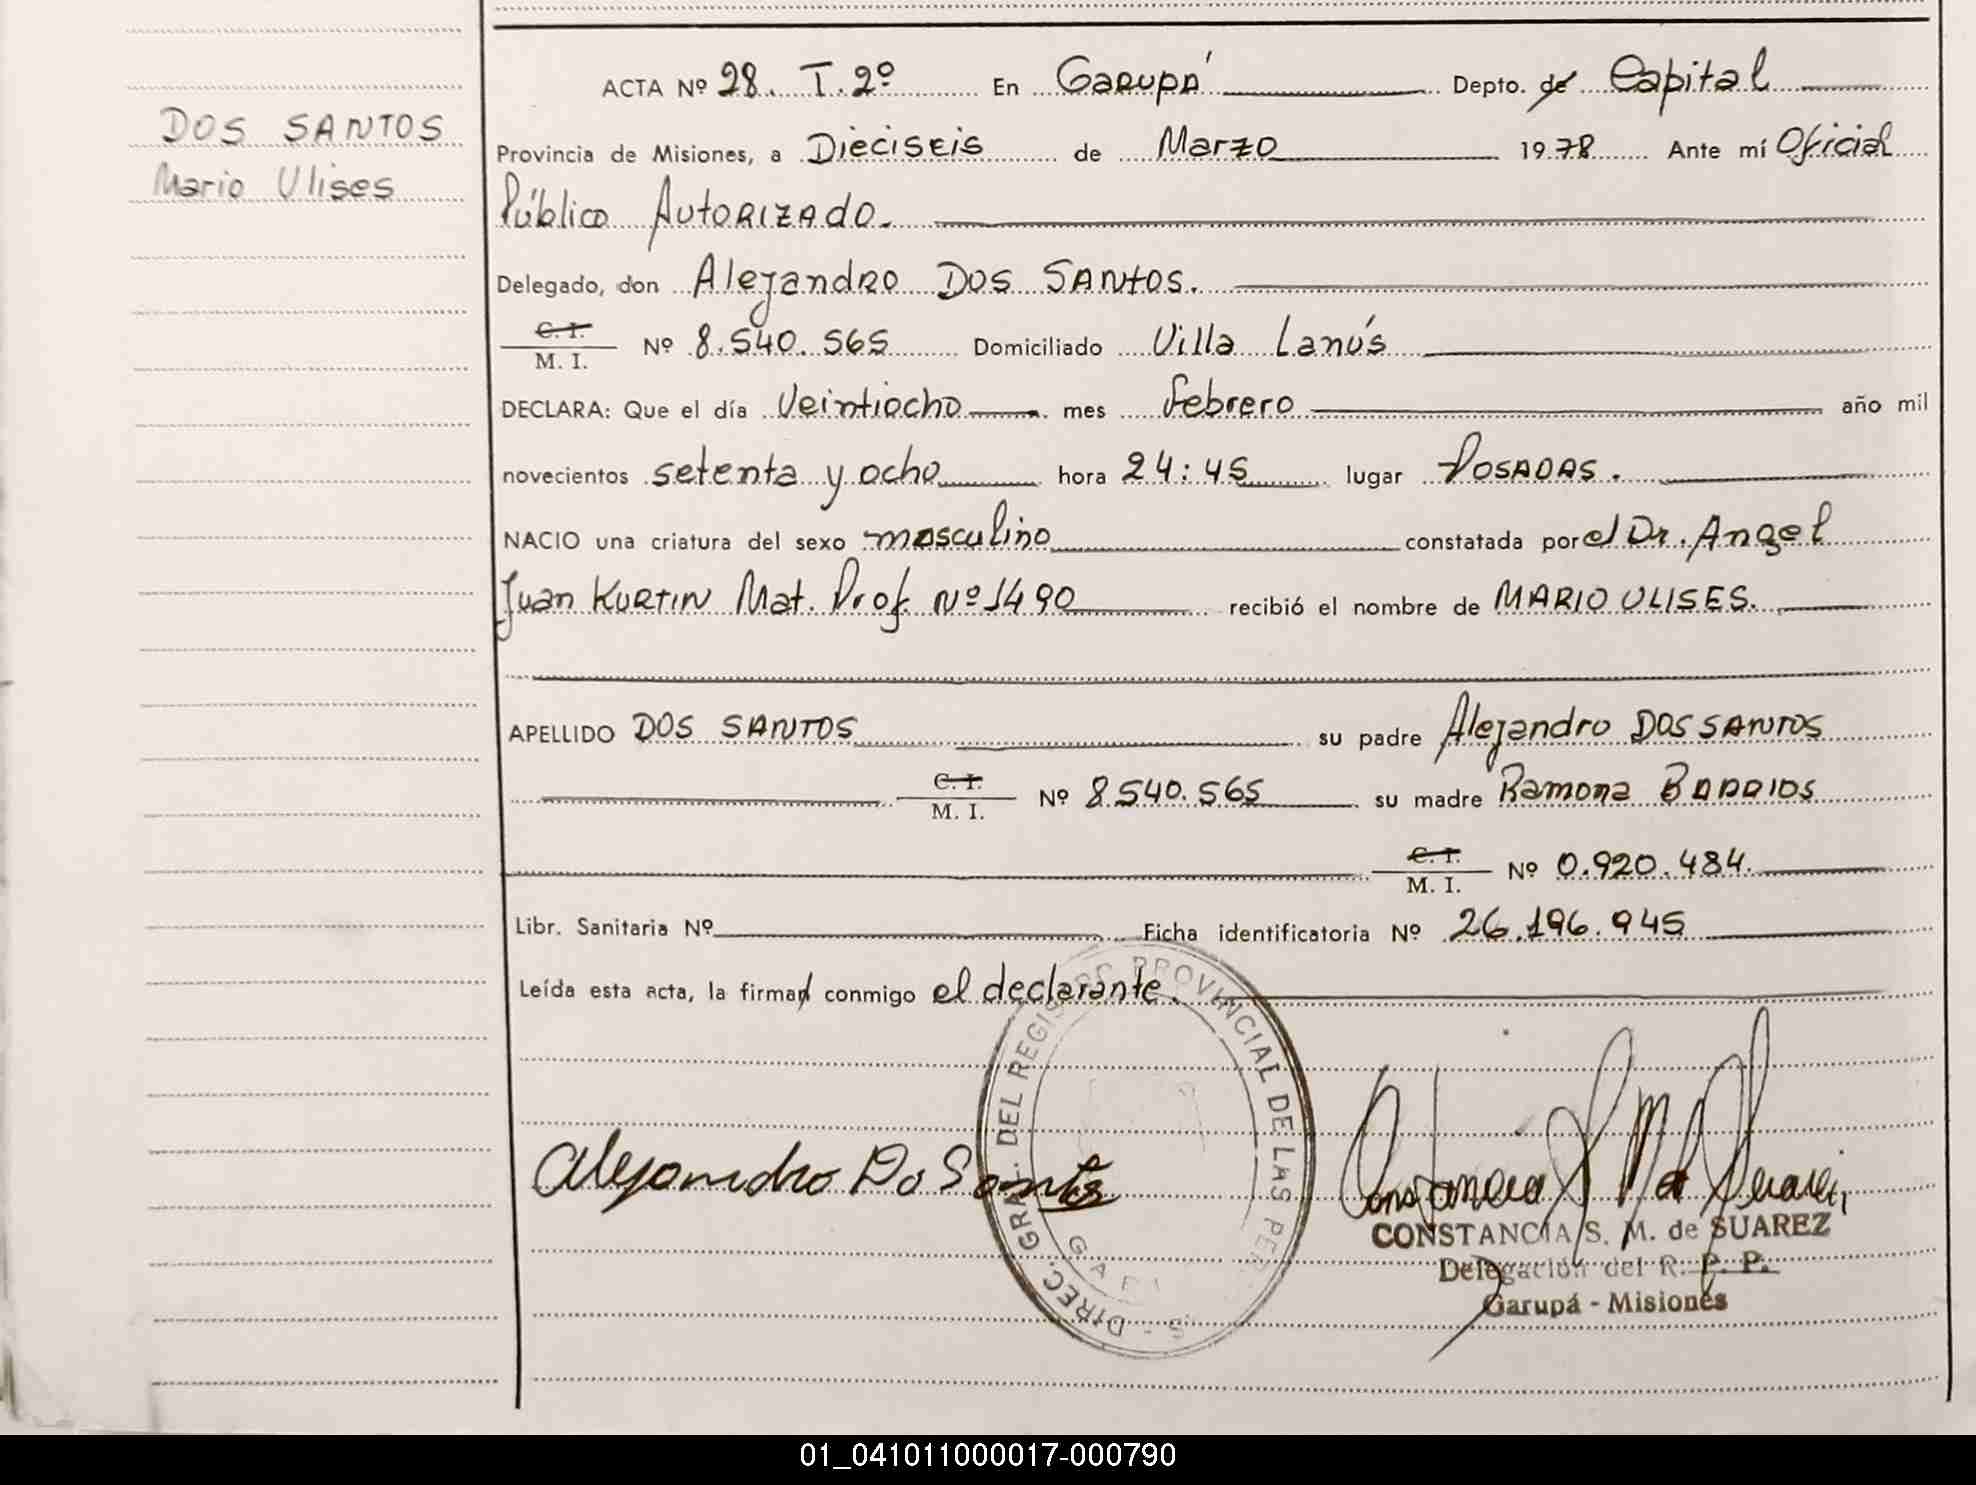 DOS SANTOS
Mario Ulises
ACTA Nº 28. T.2º En Garupá Depto. de Capital
Provincia de Misiones, a Dieciseis de Marzo 1978 Ante mí Oficial
Público Autorizado.
Delegado, don Alejandro Dos Santos.
C. I.
M. I. Nº 8.540.565 Domiciliado Villa Lanús
DECLARA: Que el día Veintiocho mes febrero año mil
novecientos setenta y ocho hora 24:45 lugar Posadas.
NACIO una criatura del sexo masculino constatada por el Dr. Angel
Juan Kurtin Mat. Prof. Nº 1490 recibió el nombre de MARIO ULISES.
APELLIDO DOS SANTOS su padre Alejandro DOS SANTOS
C. I.
M. I. Nº 8.540.565 su madre Ramona BARRIOS
C. I.
M. I. Nº 0.920.484.
Libr. Sanitaria Nº Ficha identificatoria Nº 26.196.945
Leída esta acta, la firman conmigo el declarante.
DIREC. GRAL. DEL REGISTRO PROVINCIAL DE LAS PER
Alejandro Do Santos
CONSTANCIA S. M. de SUAREZ
Delegación del R. P. P.
Garupá - Misiones
01_041011000017-000790